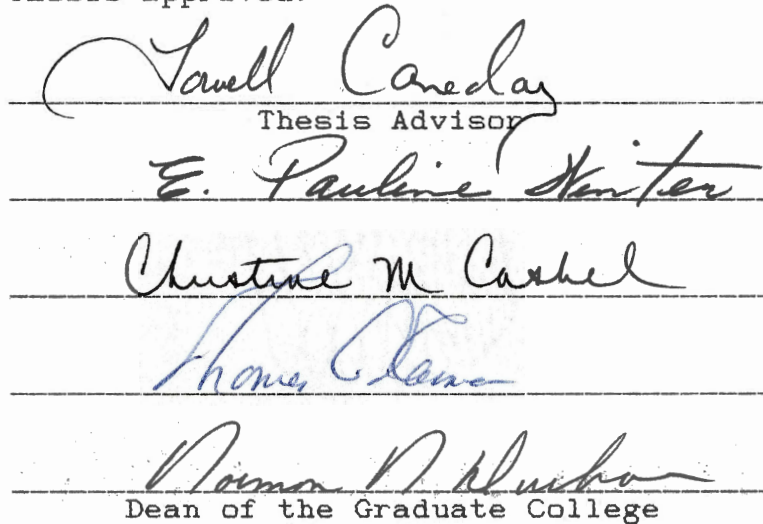 Thesis Approved:
Lowell Caneday
Thesis Advisor
E. Pauline Winter
Christine M Cashel
Thomas
Norman N Durham
Dean of the Graduate College